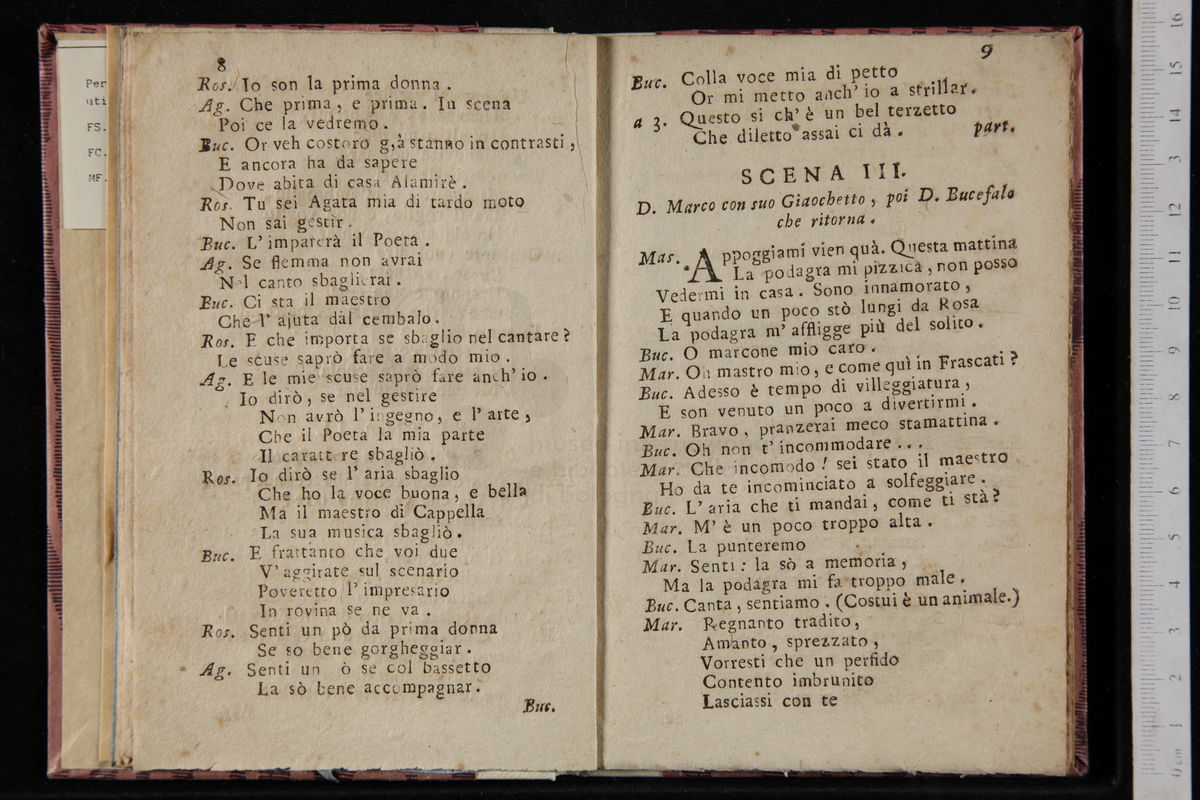 Per
uti
FS.
FC.
MF.
8
Ros. Io son la prima donna .
Ag. Che prima , e prima . In scena
Poi ce la vedremo .
Buc. Or veh costoro g,à stanno in contrasti ,
E ancora ha da sapere
Dove abita di casa Alamirè .
Ros. Tu sei Agata mia di tardo moto
Non sai gestir .
Buc. L' imparerà il Poeta .
Ag. Se flemma non avrai
Nel canto sbaglierai .
Buc. Ci sta il maestro
Che l' ajuta dal cembalo .
Ros. E che importa se sbaglio nel cantare ?
Le scuse saprò fare a modo mio .
Ag. E le mie scuse saprò fare anch' io .
Io dirò , se nel gestire
Non avrò l' ingegno , e l' arte ,
Che il Poeta la mia parte
Il carattere sbagliò .
Ros. Io dirò se l' aria sbaglio
Che ho la voce buona , e bella
Ma il maestro di Cappella
La sua musica sbagliò .
Buc. E frattanto che voi due
V' aggirate sul scenario
Poveretto l' impresario
In rovina se ne va .
Ros. Senti un pò da prima donna
Se so bene gorgheggiar .
Ag. Senti un ò se col bassetto
La sò bene accompagnar .
Buc.
9
Buc. Colla voce mia di petto
Or mi metto anch' io a strillar .
a 3. Questo si ch' è un bel terzetto
Che diletto assai ci dà . part.
SCENA III.
D. Marco con suo Giaochetto , poi D. Bucefalo
che ritorna .
Mas. Appoggiami vien quà . Questa mattina
La podagra mi pizzica , non posso
Vedermi in casa . Sono innamorato ,
E quando un poco stò lungi da Rosa
La podagra m' affligge più del solito .
Buc. O marcone mio caro .
Mar. Oh mastro mio , e come quì in Frascati ?
Buc. Adesso è tempo di villeggiatura ,
E son venuto un poco a divertirmi .
Mar. Bravo , pranzerai meco stamattina .
Buc. Oh non t' incommodare . . .
Mar. Che incomodo ! sei stato il maestro
Ho da te incominciato a solfeggiare .
Buc. L' aria che ti mandai , come ti stà ?
Mar. M' è un poco troppo alta .
Buc. La punteremo
Mar. Senti : la sò a memoria ,
Ma la podagra mi fa troppo male .
Buc. Canta , sentiamo . (Costui è un animale.)
Mar. Regnanto tradito ,
Amanto , sprezzato ,
Vorresti che un perfido
Contento imbrunito
Lasciassi con te
16
15
14
13
12
11
10
9
8
7
6
5
4
3
2
1
0 cm